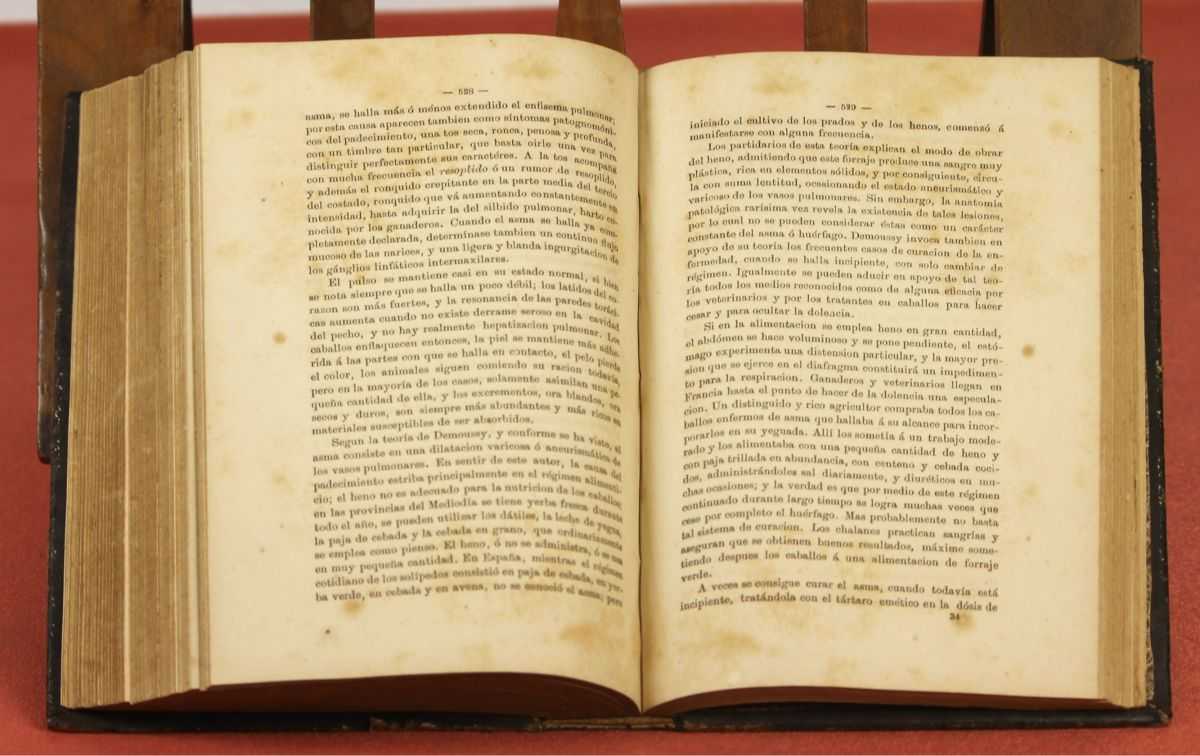 — 528 —
asma, se halla más ó ménos extendido el enfisema pulmonar;
por esta causa aparecen tambien como síntomas patognomóni-
cos del padecimiento, una tos seca, ronca, penosa y profunda,
con un timbre tan particular, que basta oirle una vez para
distinguir perfectamente sus caractéres. A la tos acompaña
con mucha frecuencia el resoplido ó un rumor de resoplido,
y además el ronquido crepitante en la parte media del tercio
del costado, ronquido que vá aumentando constantemente en
intensidad, hasta adquirir la del silbido pulmonar, harto co-
nocida por los ganaderos. Cuando el asma se halla ya com-
pletamente declarada, determínase tambien un contínuo flujo
mucoso de las narices, y una ligera y blanda ingurgitacion de
los gánglios linfáticos intermaxilares.
El pulso se mantiene casi en su estado normal, si bien
se nota siempre que se halla un poco débil; los latidos del co-
razon son más fuertes, y la resonancia de las paredes toráci-
cas aumenta cuando no existe derrame seroso en la cavidad
del pecho, y no hay realmente hepatizacion pulmonar. Los
caballos enflaquecen entonces, la piel se mantiene más adhe-
rida á las partes con que se halla en contacto, el pelo pierde
el color, los animales siguen comiendo su racion todavía,
pero en la mayoría de los casos, solamente asimilan una pe-
queña cantidad de ella, y los excrementos, ora blandos, ora
secos y duros, son siempre más abundantes y más ricos en
materiales susceptibles de ser absorbidos.
Segun la teoría de Demoussy, y conforme se ha visto, el
asma consiste en una dilatacion varicosa ó aneurismática de
los vasos pulmonares. En sentir de este autor, la causa del
padecimiento estriba principalmente en el régimen alimenti-
cio; el heno no es adecuado para la nutricion de los caballos;
en las provincias del Mediodía se tiene yerba fresca durante
todo el año, se pueden utilizar los dátiles, la leche de yegua,
la paja de cebada y la cebada en grano, que ordinariamente
se emplea como pienso. El heno, ó no se administra, ó se usa
en muy pequeña cantidad. En España, mientras el régimen
cotidiano de los solípedos consistió en paja de cebada, en yer-
ba verde, en cebada y en avena, no se conoció el asma; pero
— 529 —
iniciado el cultivo de los prados y de los henos, comenzó á
manifestarse con alguna frecuencia.
Los partidarios de esta teoría explican el modo de obrar
del heno, admitiendo que este forraje produce una sangre muy
plástica, rica en elementos sólidos, y por consiguiente, circu-
la con suma lentitud, ocasionando el estado aneurismático y
varicoso de los vasos pulmonares. Sin embargo, la anatomía
patológica rarísima vez revela la existencia de tales lesiones,
por lo cual no se pueden considerar éstas como un carácter
constante del asma ó huérfago. Demoussy invoca tambien en
apoyo de su teoría los frecuentes casos de curacion de la en-
fermedad, cuando se halla incipiente, con solo cambiar de
régimen. Igualmente se pueden aducir en apoyo de tal teo-
ría todos los medios reconocidos como de alguna eficacia por
los veterinarios y por los tratantes en caballos para hacer
cesar y para ocultar la dolencia.
Si en la alimentacion se emplea heno en gran cantidad,
el abdómen se hace voluminoso y se pone pendiente, el estó-
mago experimenta una distension particular, y la mayor pre-
sion que se ejerce en el diafragma constituirá un impedimen-
to para la respiracion. Ganaderos y veterinarios llegan en
Francia hasta el punto de hacer de la dolencia una especula-
cion. Un distinguido y rico agricultor compraba todos los ca-
ballos enfermos de asma que hallaba á su alcance para incor-
porarlos en su yeguada. Allí los sometía á un trabajo mode-
rado y los alimentaba con una pequeña cantidad de heno y
con paja trillada en abundancia, con centeno y cebada coci-
dos, administrándoles sal diariamente, y diuréticos en mu-
chas ocasiones; y la verdad es que por medio de este régimen
continuado durante largo tiempo se logra muchas veces que
cese por completo el huérfago. Mas probablemente no basta
tal sistema de curacion. Los chalanes practican sangrías y
aseguran que se obtienen buenos resultados, máxime some-
tiendo despues los caballos á una alimentacion de forraje
verde.
A veces se consigue curar el asma, cuando todavía está
incipiente, tratándola con el tártaro emético en la dósis de
34